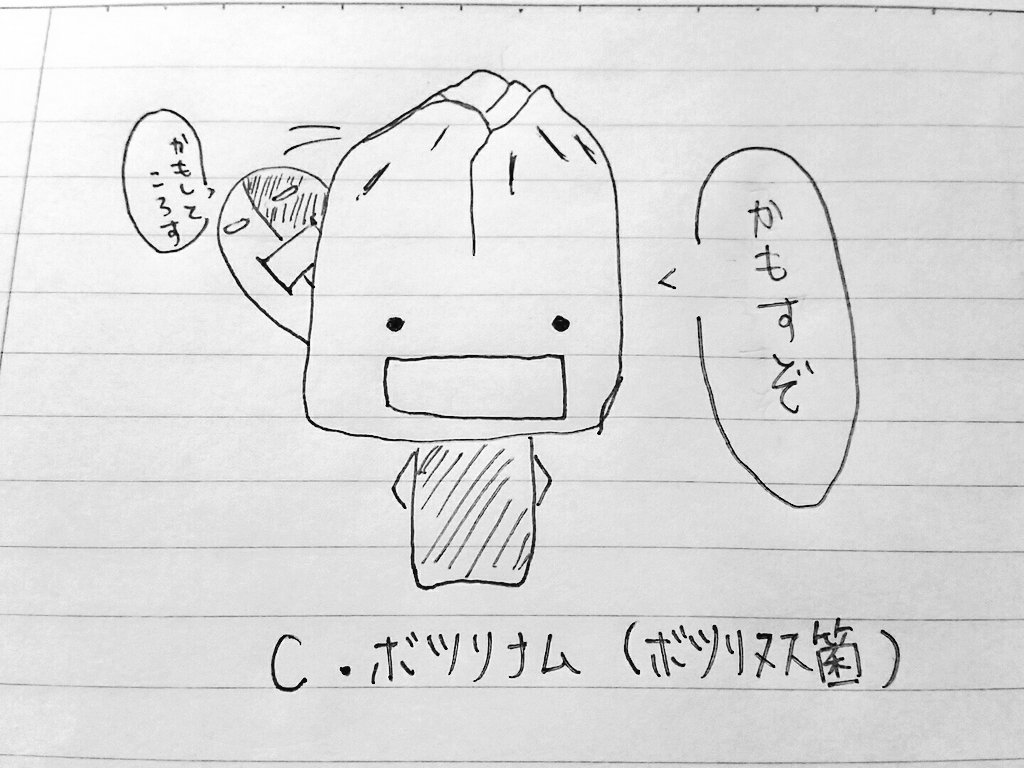 かもすぞ
かもして
ころす
C.ボツリナム(ボツリヌス箘)